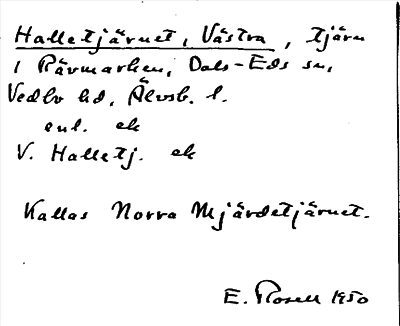 Halletjärnet, Västra, tjärn
i Rävmarken, Dals-Eds sn,
Vedbo hd, Älvsb. l.
enl. ek
V. Halletj. ek
Kallas Norra Mjärdetjärnet.
E. Rosell 1950